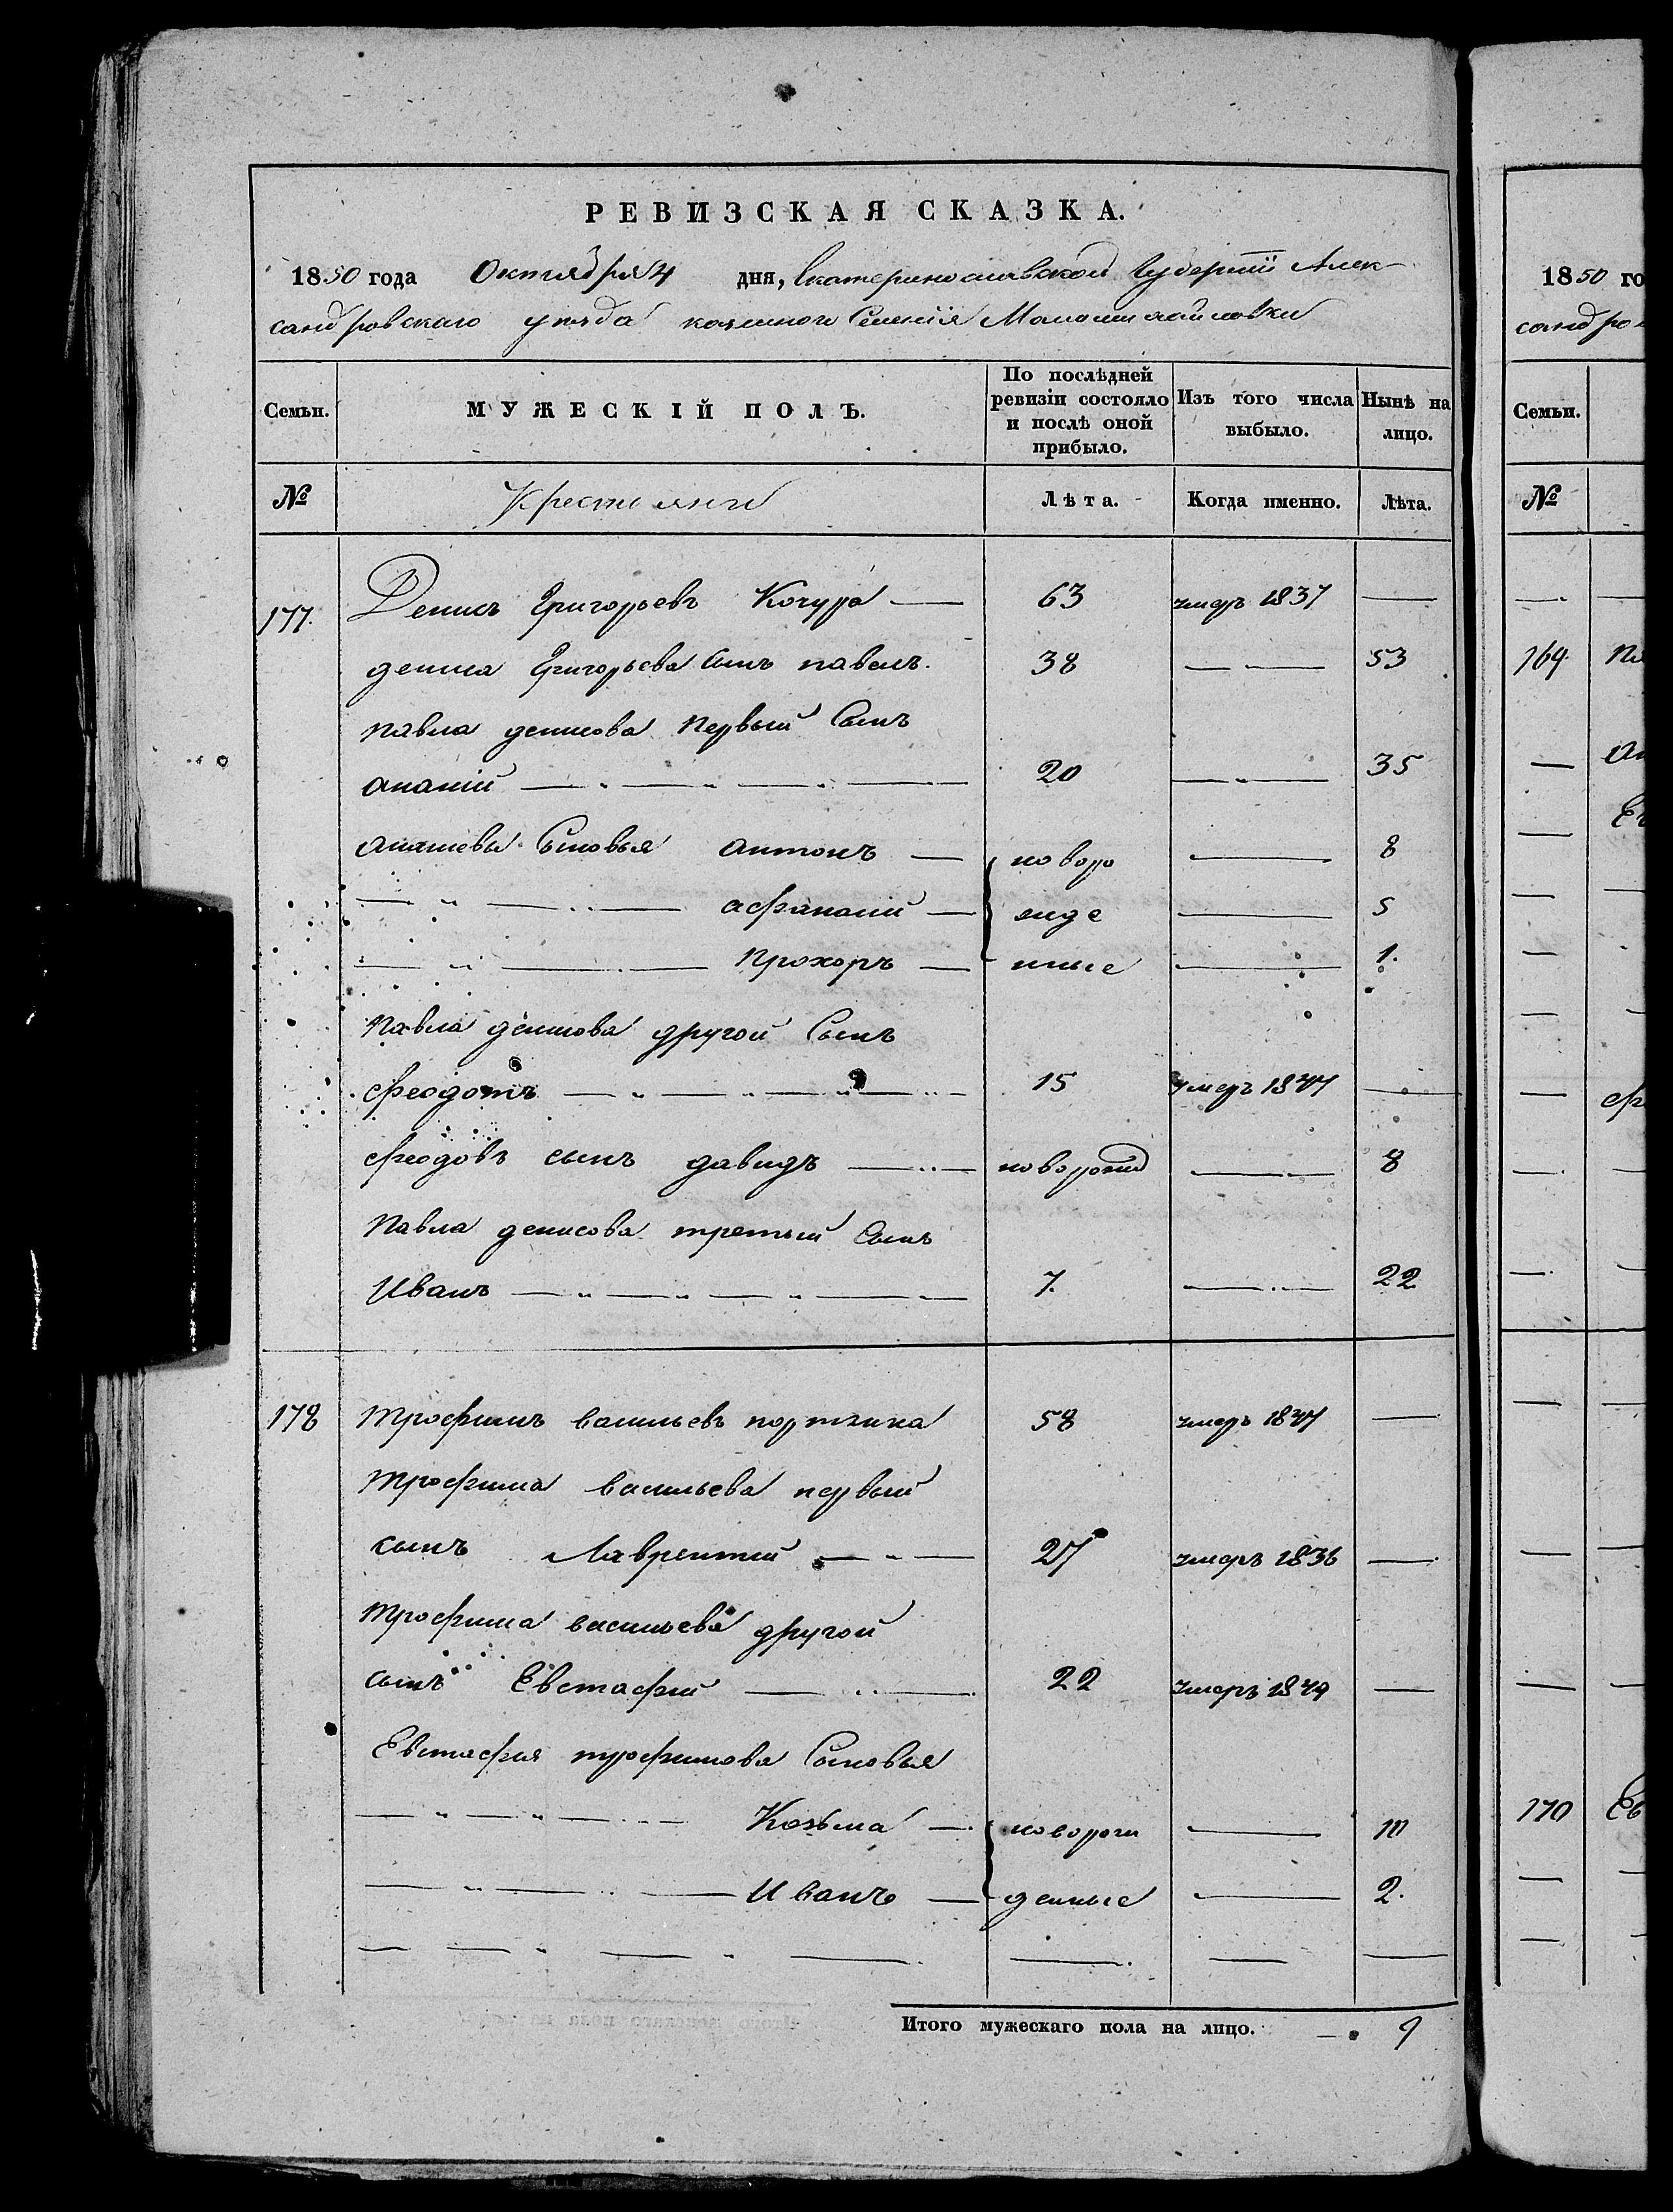 РЕВИЗСКАЯ СКАЗКА.
1850 года Октября 4 дня, Екатеринославской Губернiи Алек-
сандровскаго уѣзда казеннаго Селенiя Маломихайловки
Семьи. МУЖЕСКІЙ ПОЛЪ. По послѣдней ревизіи состояло и послѣ оной прибыло. Изъ того числа выбыло. Нынѣ на лицо.
№ Крестьяне Лѣта. Когда именно. Лѣта.
177. Денисъ Григорьевъ Кочура — 63 умеръ 1837 —
дениса Григорьева Сынъ павелъ. 38 — — 53
павла денисова первый Сынъ
ананій — 20 — — 35
Сыновья антонъ — новоро — 8
афанасій — жде — 5
Прохоръ — нные — 1.
Павла денисова другой Сынъ
феодотъ — 15 умеръ 1847 —
феодовъ сынъ давидъ — новорожд — 8
Павла денисова третьий Сынъ
Иванъ — 7. — 22
178 Трофимъ васильевъ портянка 58 умеръ 1847 —
Трофима васильева первый
сынъ Лаврентий — 27 умеръ 1836 —
Трофима васильева другой
сынъ Евстафий — 22 умеръ 1849 —
Евстафия трофимова Сыновья
Козьма — новорож — 10
Иванъ — денные — 2.
Итого мужескаго пола на лицо. — 9
1850 го
сандро
Семьи.
№
169.
170 Ев